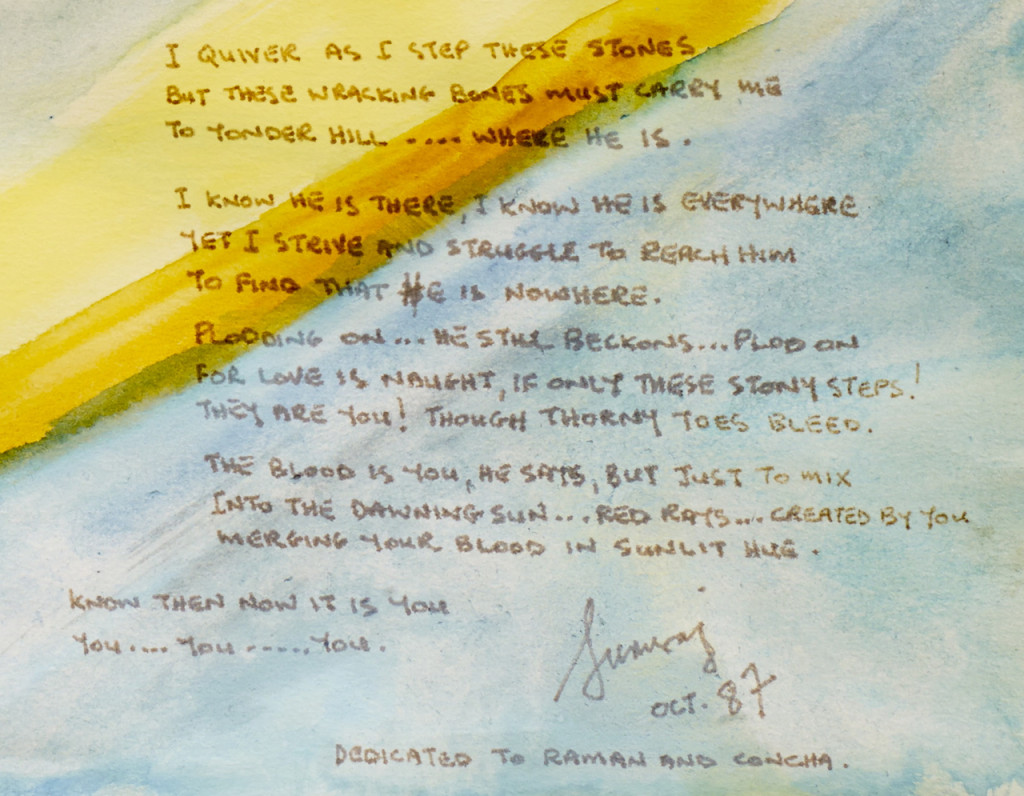 I QUIVER AS I STEP THESE STONES
BUT THESE WRACKING BONES MUST CARRY ME
TO YONDER HILL .... WHERE HE IS.
I KNOW HE IS THERE, I KNOW HE IS EVERYWHERE
YET I STRIVE AND STRUGGLE TO REACH HIM
TO FIND THAT HE IS NOWHERE.
PLODDING ON... HE STILL BECKONS... PLOD ON
FOR LOVE IS NAUGHT, IF ONLY THESE STONY STEPS!
THEY ARE YOU! THOUGH THORNY TOES BLEED.
THE BLOOD IS YOU, HE SAYS, BUT JUST TO MIX
INTO THE DAWNING SUN... RED RAYS... CREATED BY YOU
MERGING YOUR BLOOD IN SUNLIT HUE.
KNOW THEN NOW IT IS YOU
YOU.... YOU ....., YOU.
OCT. 87
DEDICATED TO RAMAN AND CONCHA.